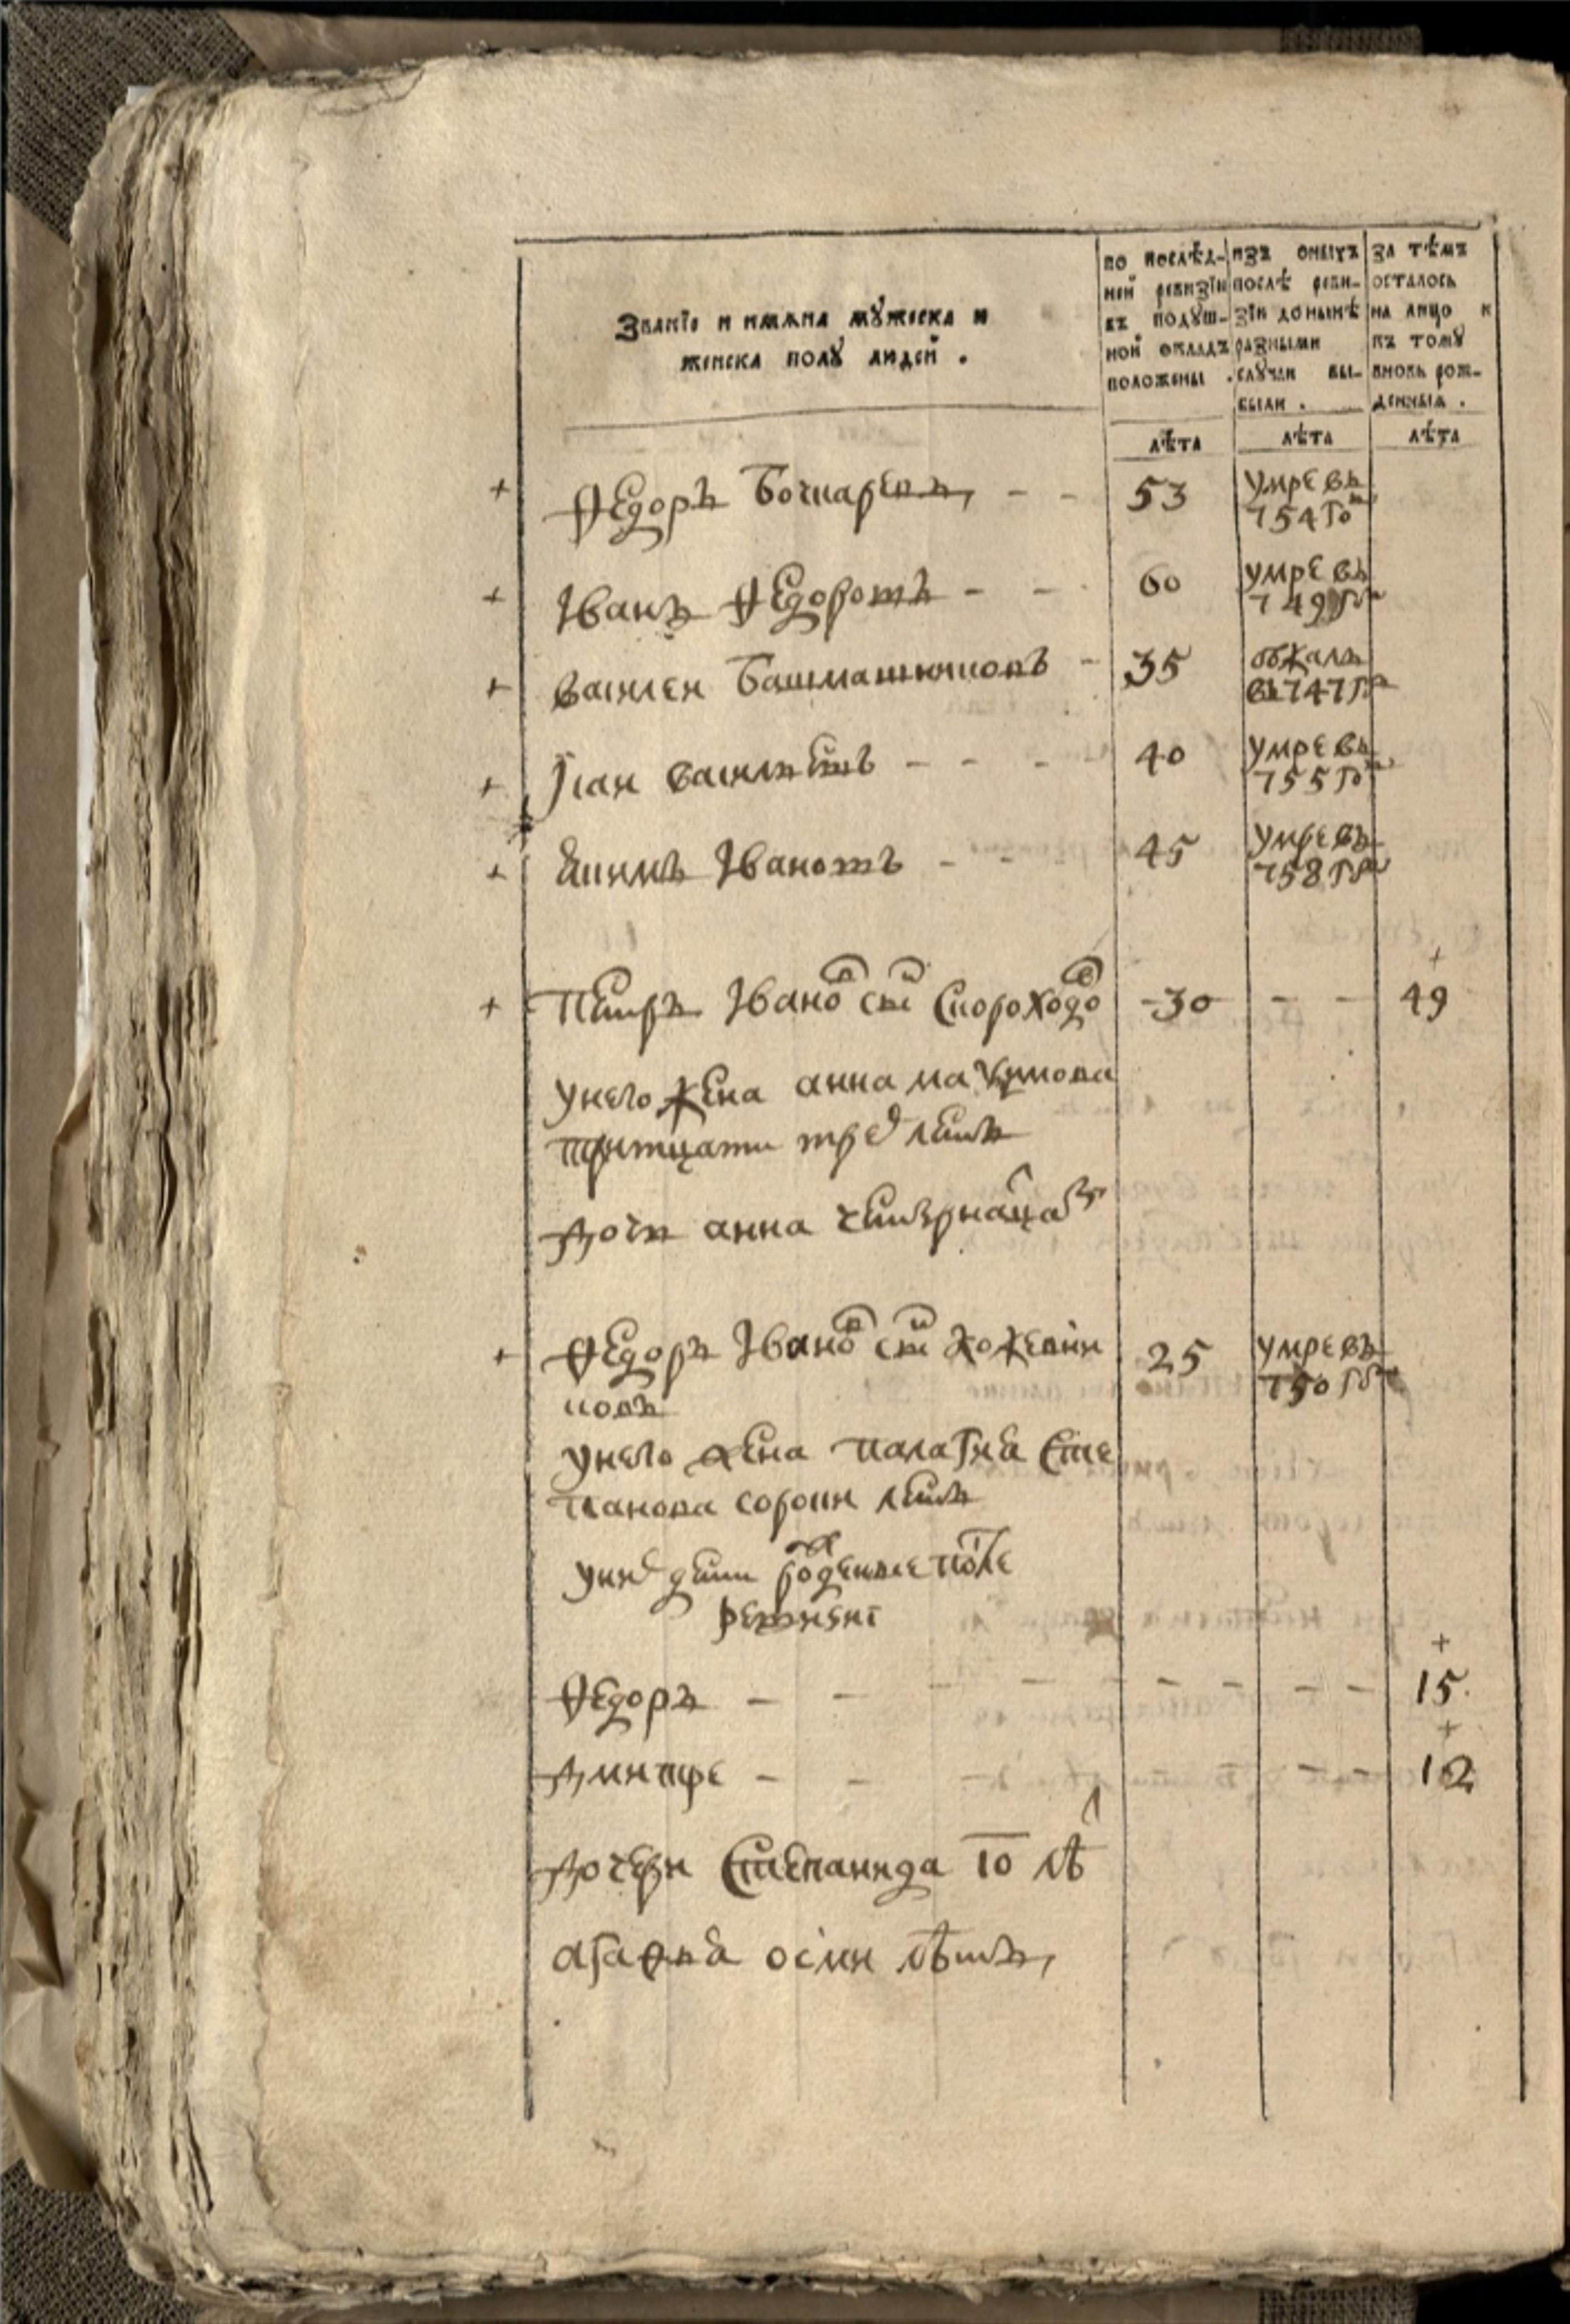 Званїе и имѧна мꙋжеска и
женска полꙋ людей .
по послѣд-
ней ревизїи
въ подꙋш-
ной окладъ
положены .
изъ оныхъ
послѣ реви-
зїи донынѣ
разными
слꙋчаи вы-
были .
за тѣмъ
осталось
на лицо и
къ томꙋ
вновь рож-
денныѧ .
лѣта лѣта лѣта
+ Ѳедоръ Бочкаревъ, - - 53 умре въ
754 го
+ Іванъ Ѳедоровъ - - 60 умре въ
749 го
+ василеи Башмашниковъ - 35 збѣжалъ
въ 747 го
+ васильевъ - - - 40 умре въ
755 го
+ Екимъ Івановъ - - 45 умре въ
758 го
+ Петръ Івановъ снъ Скороходов - 30 - - + 49
унего жена анна
тритцати трех летъ
дочь анна четырнаца
+ Ѳедоръ Івановъ снъ Кожевни 25 умре въ
ковъ 750 го
унего жена палагѣя Сте
панова сорокъ летъ
уних дети рожденые после
ревизиі
Ѳедоръ - - - - - - - - - + 15
дмитре - - - - - + 12
дочери Степанида 10 лѣт
агаѳья осми лѣтъ,